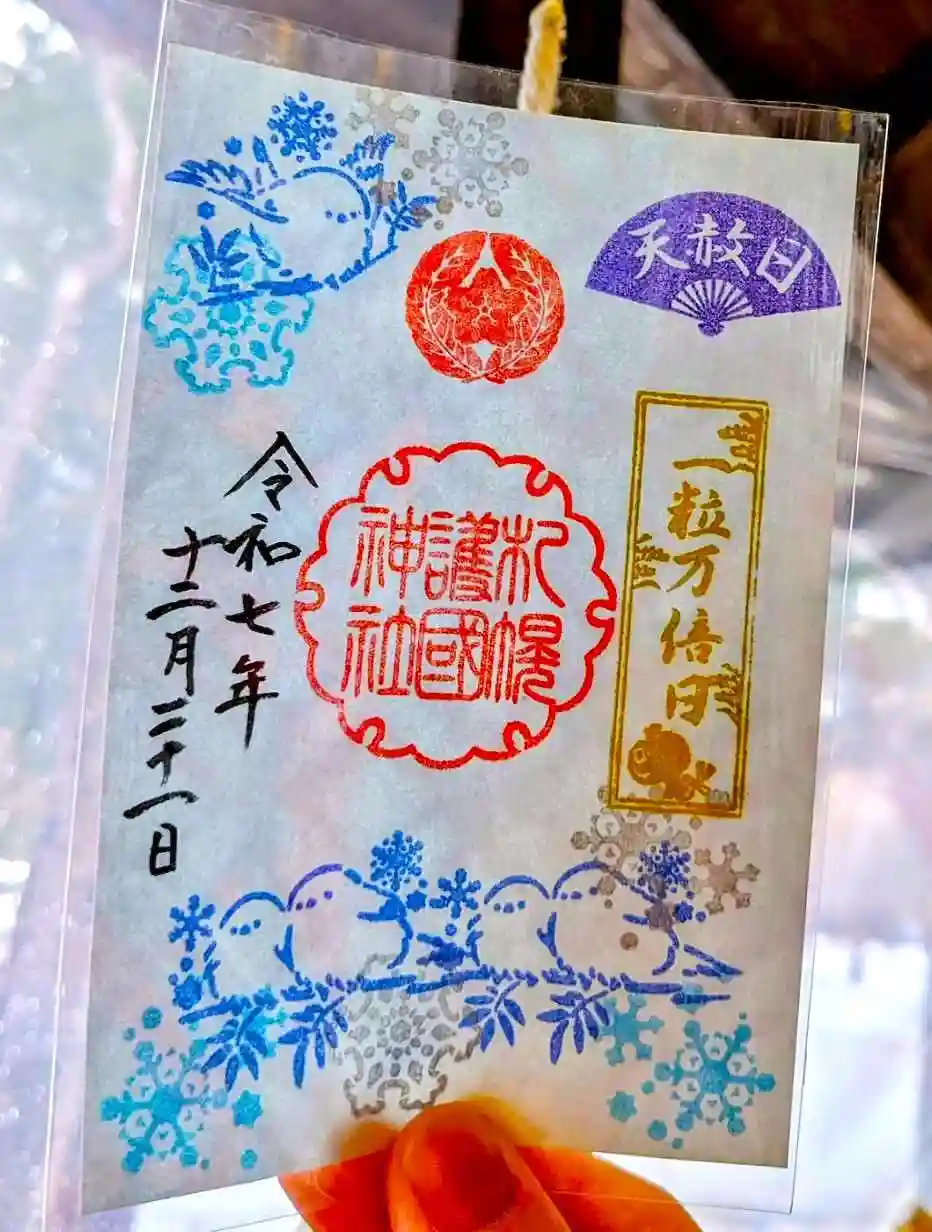 天赦日
一粒万倍日
札幌
護國
神社
令和七年
十二月二十一日